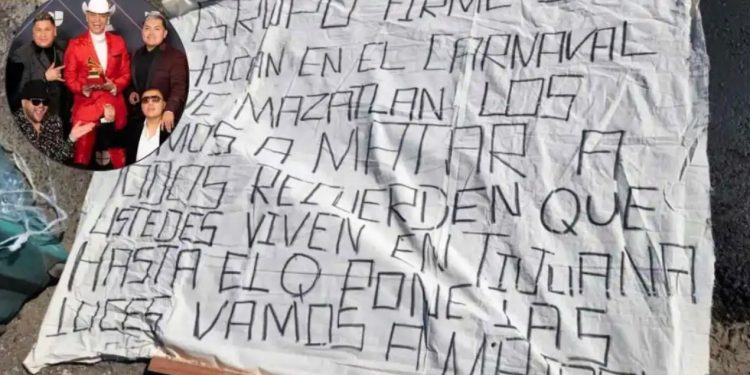 GRUPO FIRME SI
TOCAN EN EL CARNAVAL
DE MAZATLAN LOS
VAMOS A MATAR A
TODOS RECUERDEN QUE
USTEDES VIVEN EN TIJUANA
HASTA EL Q PONE LAS
LUCES VAMOS A MATAR